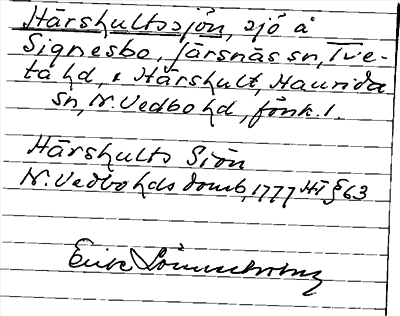 Härshultssjön, sjö å
Signesbo, Järsnäs sn, Tve-
ta hd, & Härshult, Haurida
sn, N. Vedbo hd, Jönk. l.
Härshults Siön
N. Vedbo hds domb, 1777 HT § 63